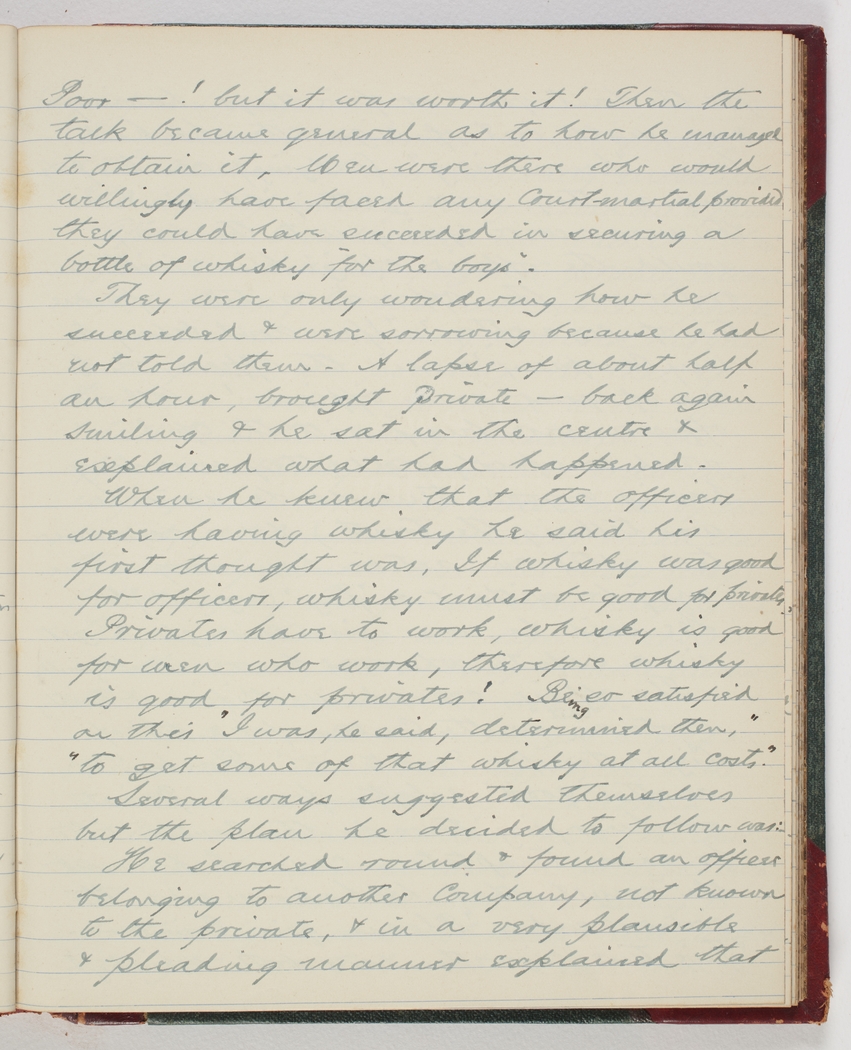 Poor — ! but it was worth it! Then the
talk became general as to how he managed
to obtain it, Men were there who would
willingly have faced any Court-martial provided
they could have succeeded in securing a
bottle of whisky "for the boys".
They were only wondering how he
succeeded & were sorrowing because he had
not told them - A lapse of about half
an hour, brought Private — back again
smiling & he sat in the centre &
explained what had happened.
When he knew that the officers
were having whisky he said his
first thought was, If whisky was good
for officers, whisky must be good for privates.
Privates have to work, whisky is good
for men who work, therefore whisky
is good for privates! Being so satisfied
on this "I was, he said, determined then,"
"to get some of that whisky at all costs."
Several ways suggested themselves
but the plan he decided to follow was:-
He searched round & found an officer
belonging to another Company, not known
to the private, & in a very plausible
& pleading manner explained that